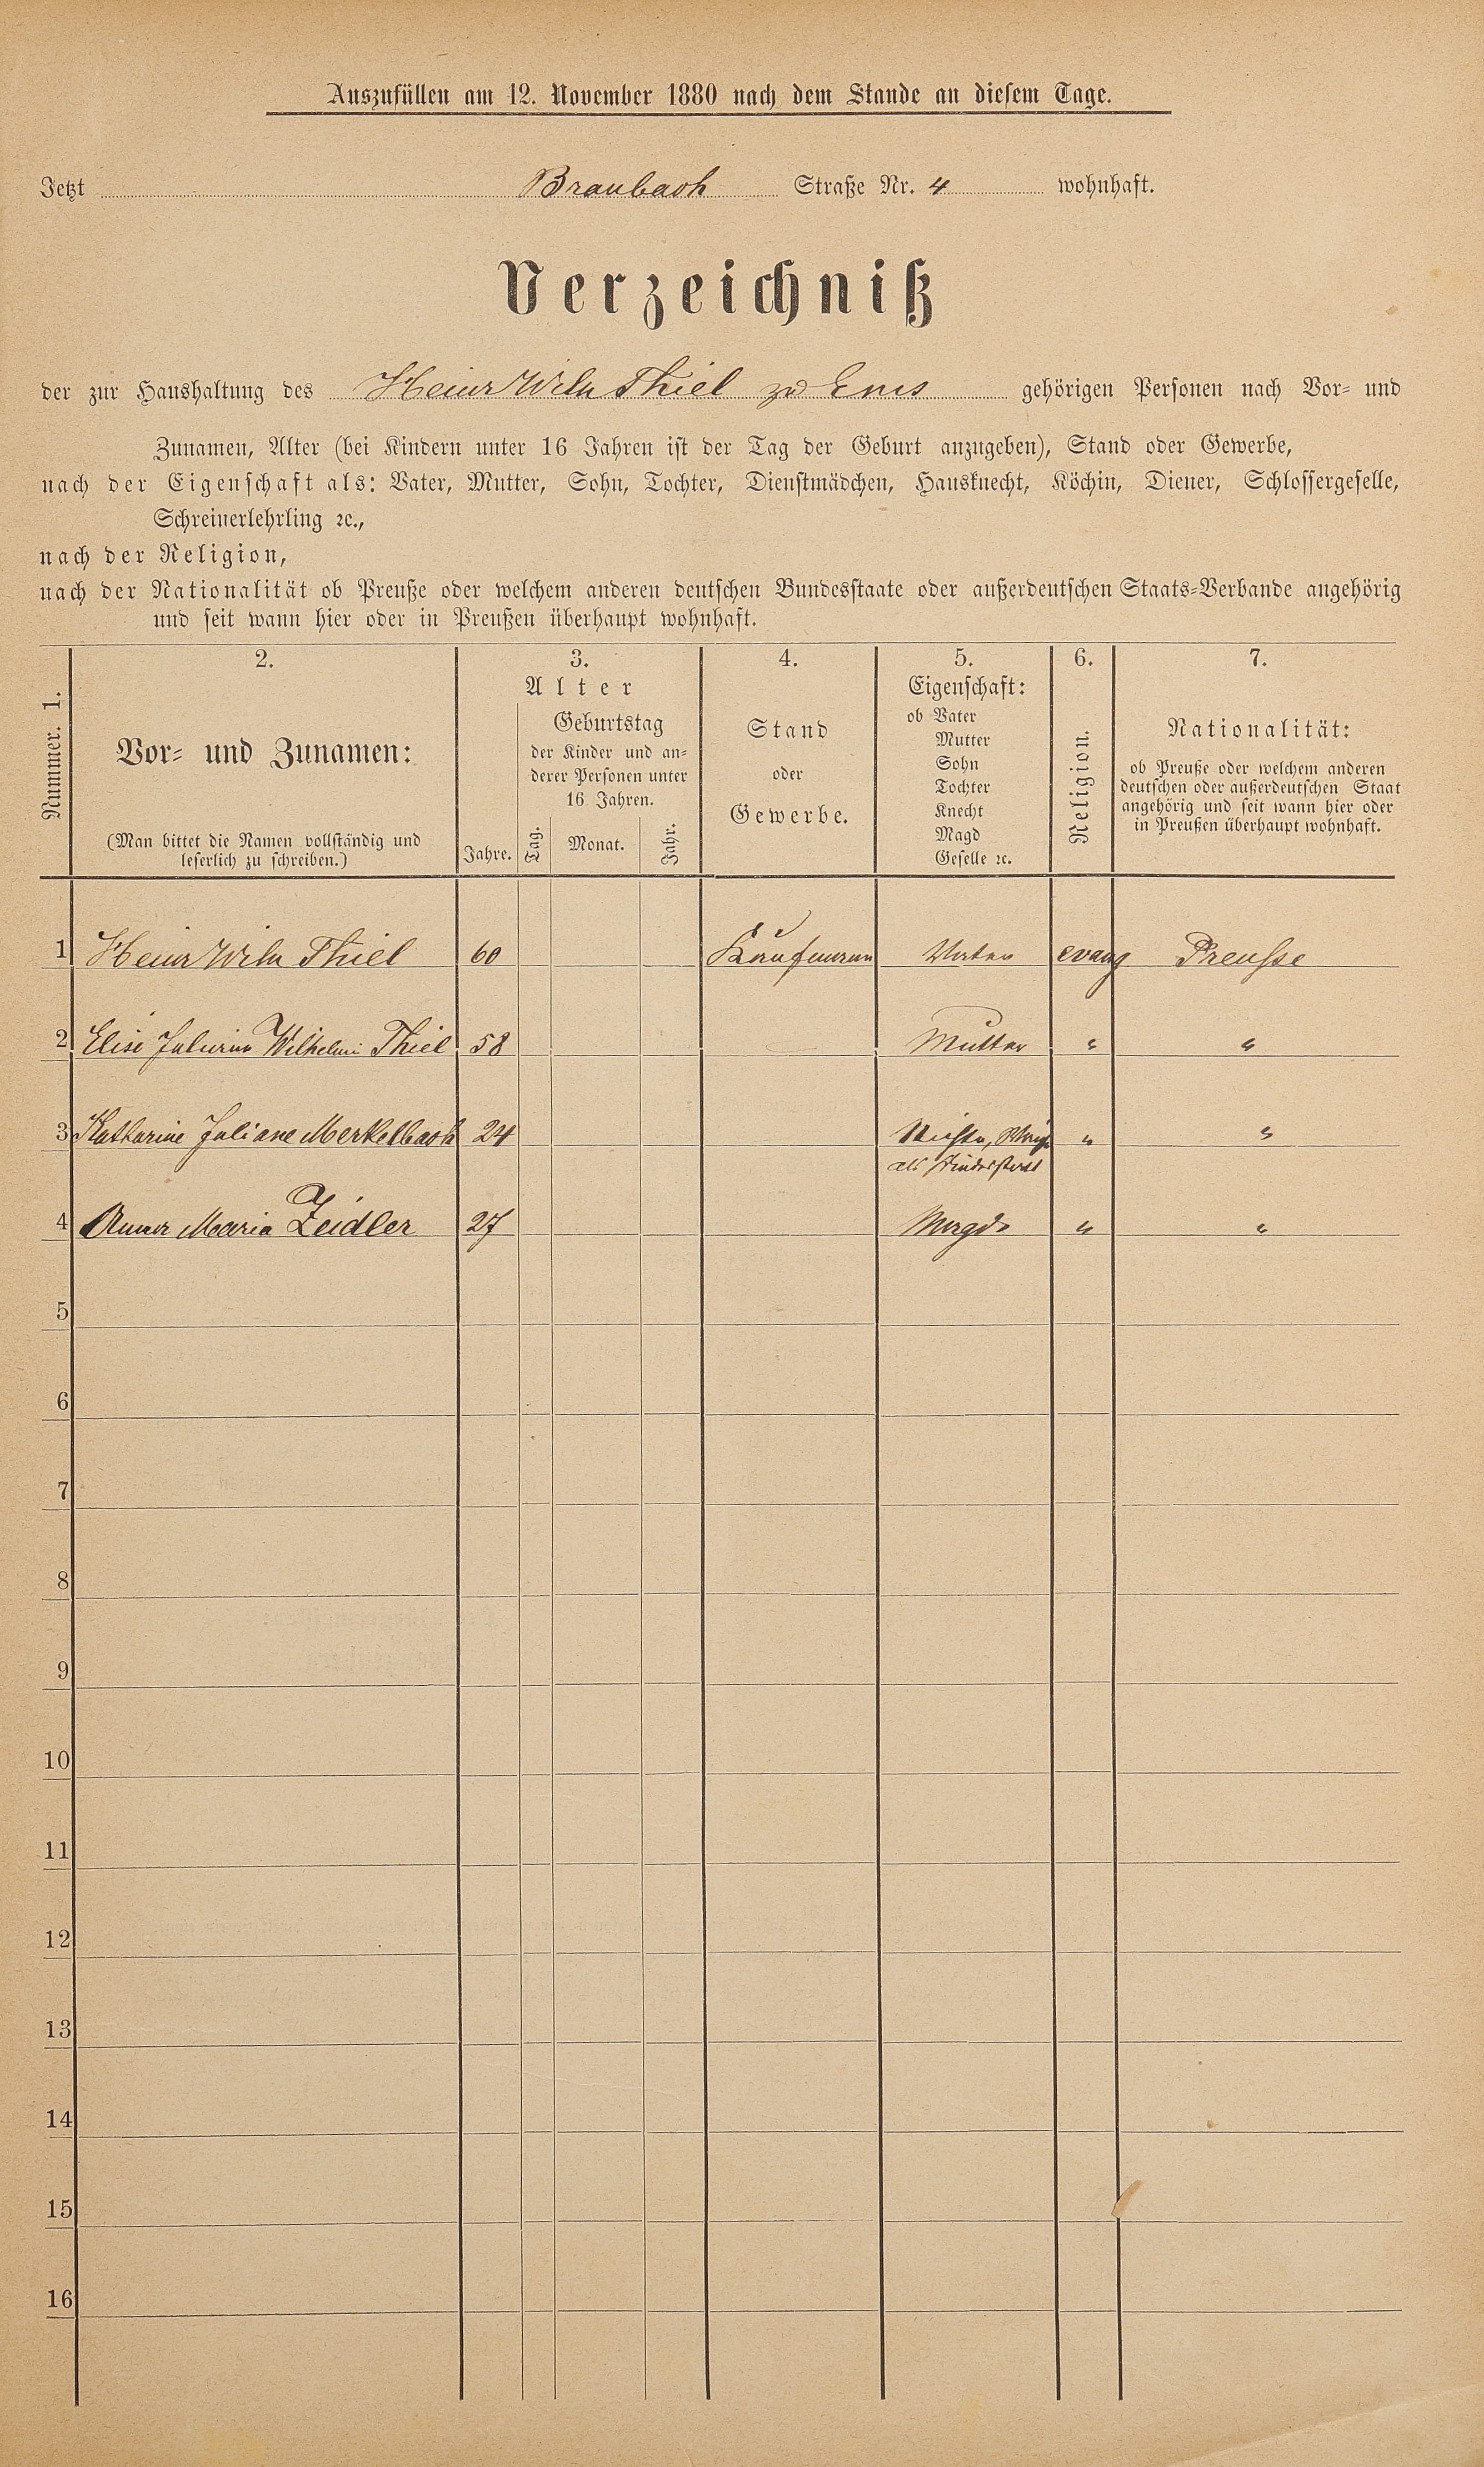 Auszufüllen am 12. November 1880 nach dem Stande an diesem Tage.
Jetzt Braubach Straße Nr. 4 wohnhaft.
Verzeichniß
der zur Haushaltung des Heinr Wilh Thiel zu Ems gehörigen Personen nach Vor- und
Zunamen, Alter (bei Kindern unter 16 Jahren ist der Tag der Geburt anzugeben), Stand oder Gewerbe,
nach der Eigenschaft als: Vater, Mutter, Sohn, Tochter, Dienstmädchen, Hausknecht, Köchin, Diener, Schlossergeselle,
Schreinerlehrling ꝛc.,
nach der Religion,
nach der Nationalität ob Preuße oder welchem anderen deutschen Bundesstaate oder außerdeutschen Staats-Verbande angehörig
und seit wann hier oder in Preußen überhaupt wohnhaft.
Nummer. 1.
2.
Vor- und Zunamen:
(Man bittet die Namen vollständig und
leserlich zu schreiben.)
3.
Alter
Jahre.
Geburtstag
der Kinder und an-
derer Personen unter
16 Jahren.
Tag. Monat. Jahr.
4.
Stand
oder
Gewerbe.
5.
Eigenschaft:
ob Vater
Mutter
Sohn
Tochter
Knecht
Magd
Geselle ꝛc.
6.
Religion.
7.
Nationalität:
ob Preuße oder welchem anderen
deutschen oder außerdeutschen Staat
angehörig und seit wann hier oder
in Preußen überhaupt wohnhaft.
1 Heinr Wilh Thiel 60 Kaufmann Vater evang Preusse
2 Elise Wilhelmi Thiel 58 Mutter " "
3 Katharine Juliane Merkelbach 24 Nichte, " "
als Kindesstatt
4 Anna Maria Zeidler 27 Magd " "
5
6
7
8
9
10
11
12
13
14
15
16